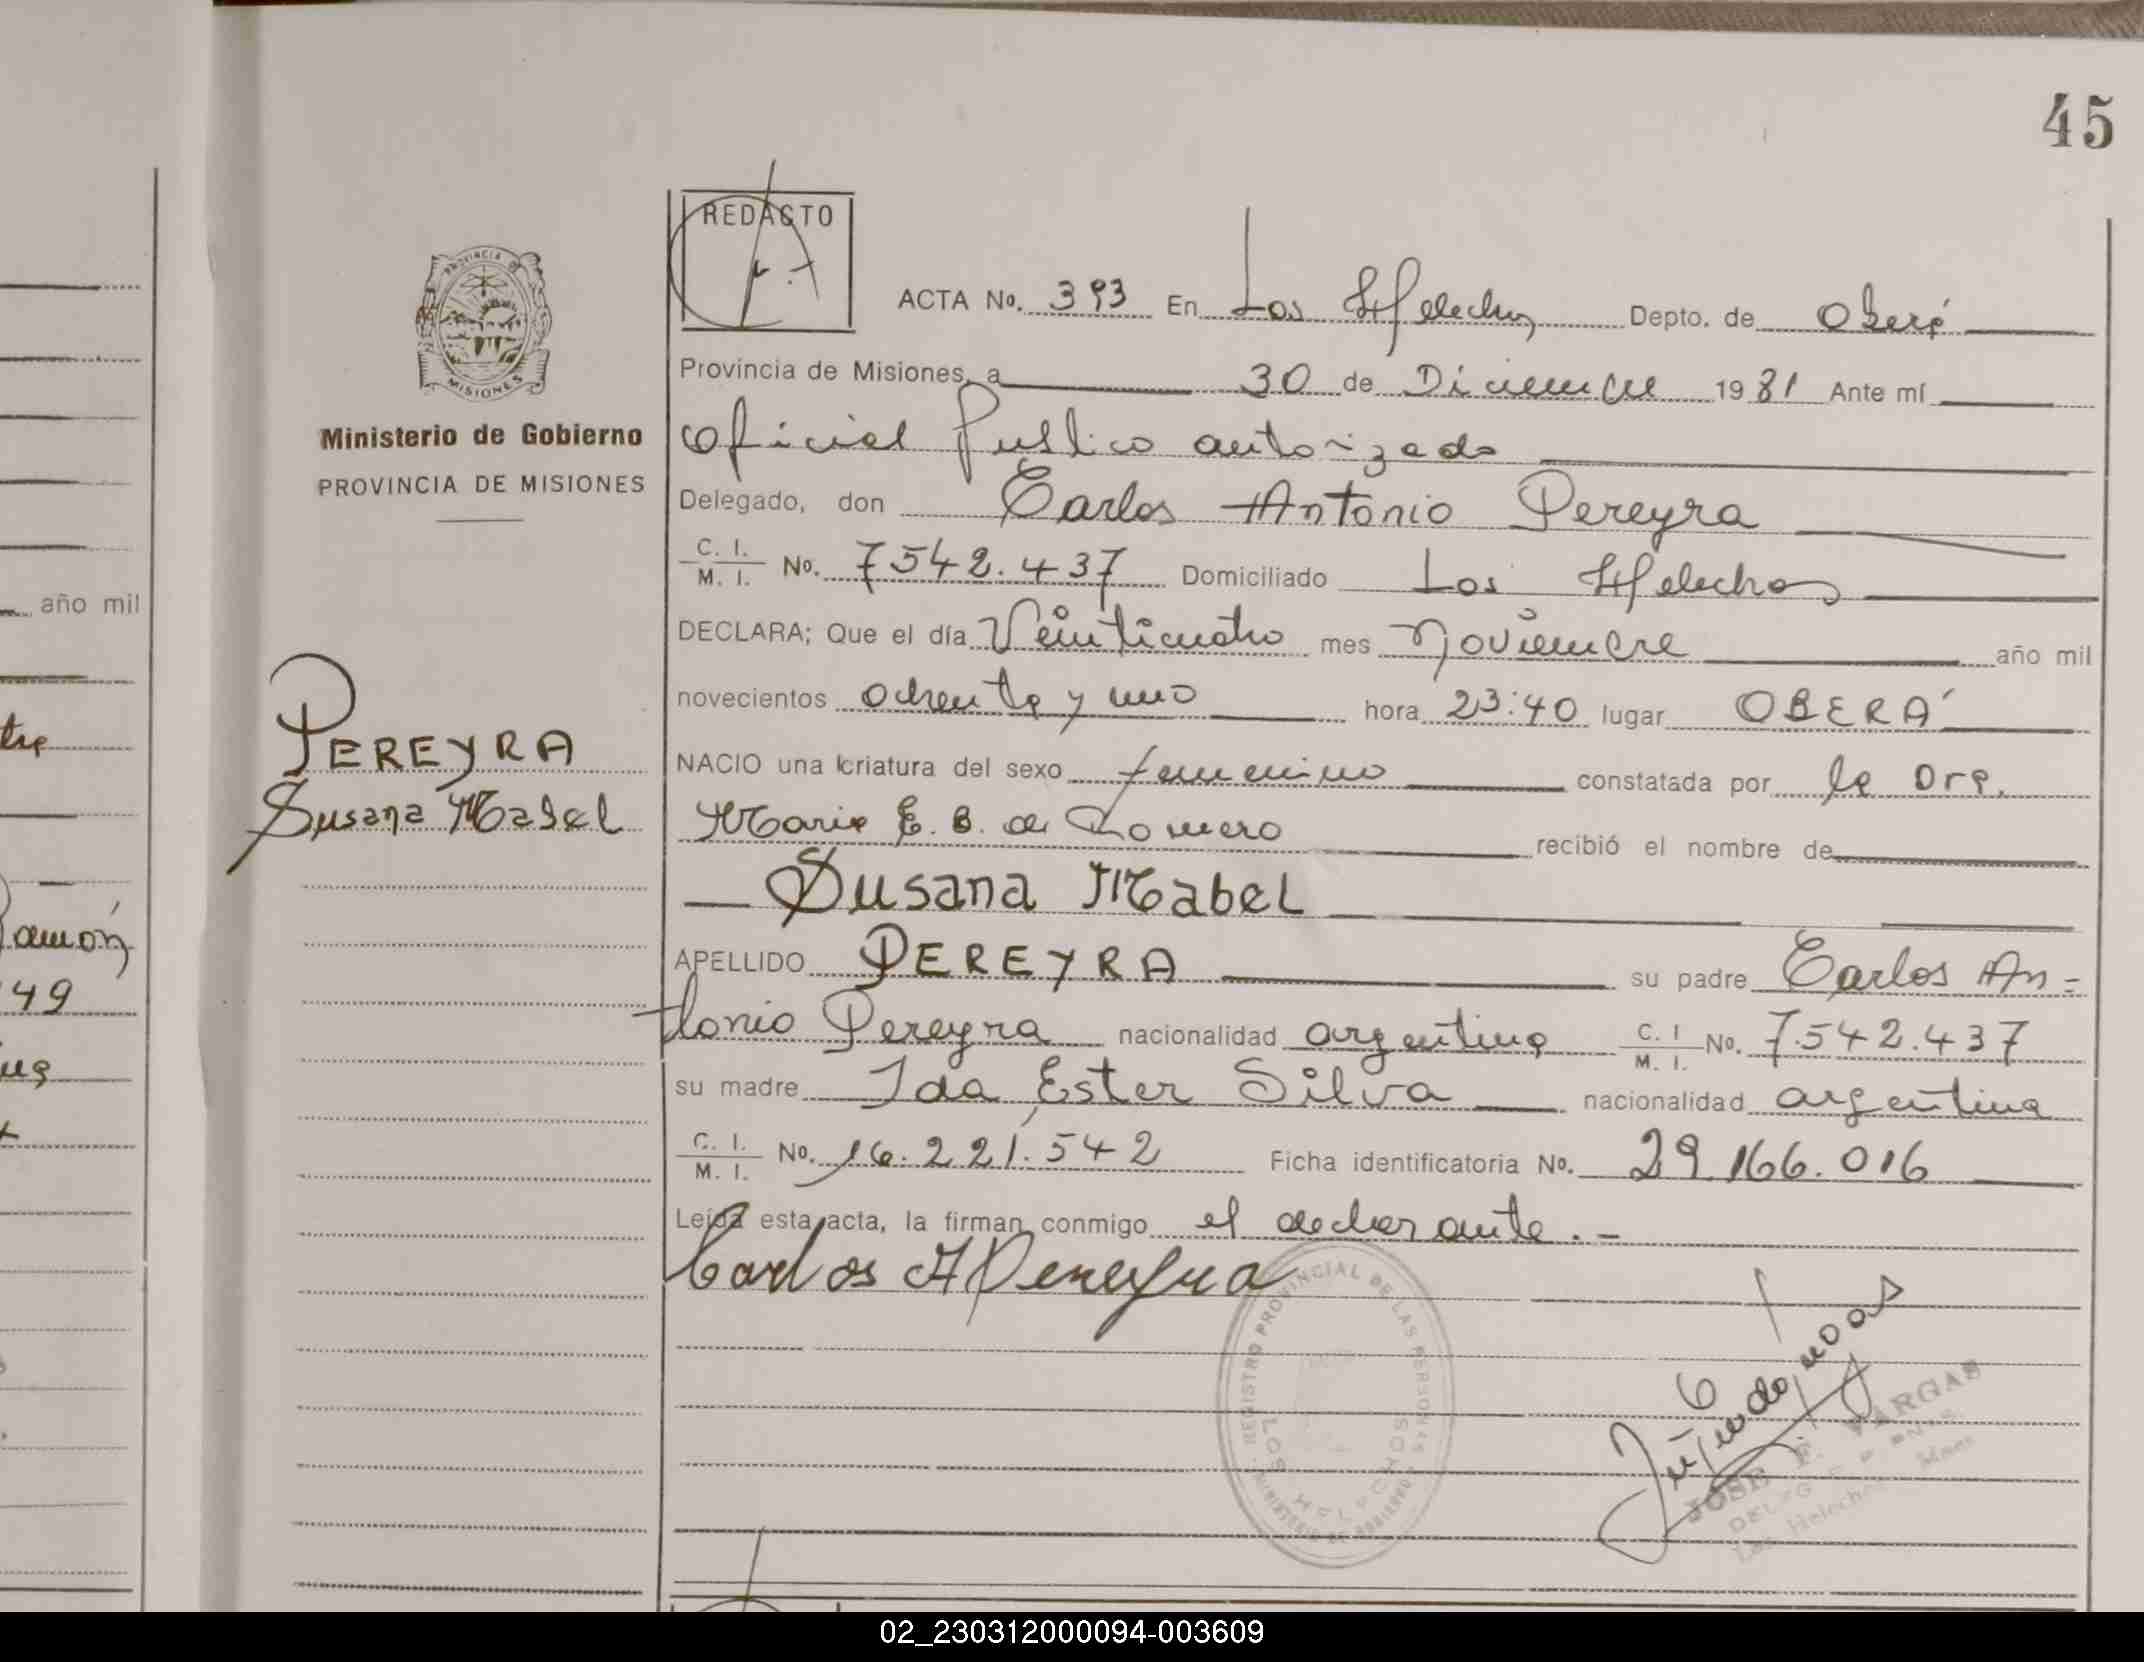 45
REDACTO
ACTA No. 393 En Los Helechos Depto. de Oberá
Provincia de Misiones, a 30 de Diciembre 1981 Ante mí
Oficial Publico autorizado
Delegado, don Carlos Antonio Pereyra
C. I. M. I. No. 7542.437 Domiciliado Los Helechos
DECLARA; Que el día Veinticuatro mes Noviembre año mil
novecientos ochenta y uno hora 23:40 lugar OBERÁ
NACIO una criatura del sexo femenino constatada por la Dra.
Maria E. B. de Romero recibió el nombre de
Susana Mabel
APELLIDO PEREYRA su padre Carlos An=
tonio Pereyra nacionalidad argentina C. I M. I. No. 7.542.437
su madre Ida Ester Silva nacionalidad argentina
C. I. M. I. No. 16.221.542 Ficha identificatoria No. 29.166.016
Leída esta acta, la firman conmigo el declarante.-
Carlos A Pereyra
PROVINCIA DE
MISIONES
Ministerio de Gobierno
PROVINCIA DE MISIONES
PEREYRA
Susana Mabel
REGISTRO PROVINCIAL DE LAS PERSONAS
LOS HELECHOS
JOSE F. VARGAS
Los Helechos
año mil
amón
49
02_230312000094-003609